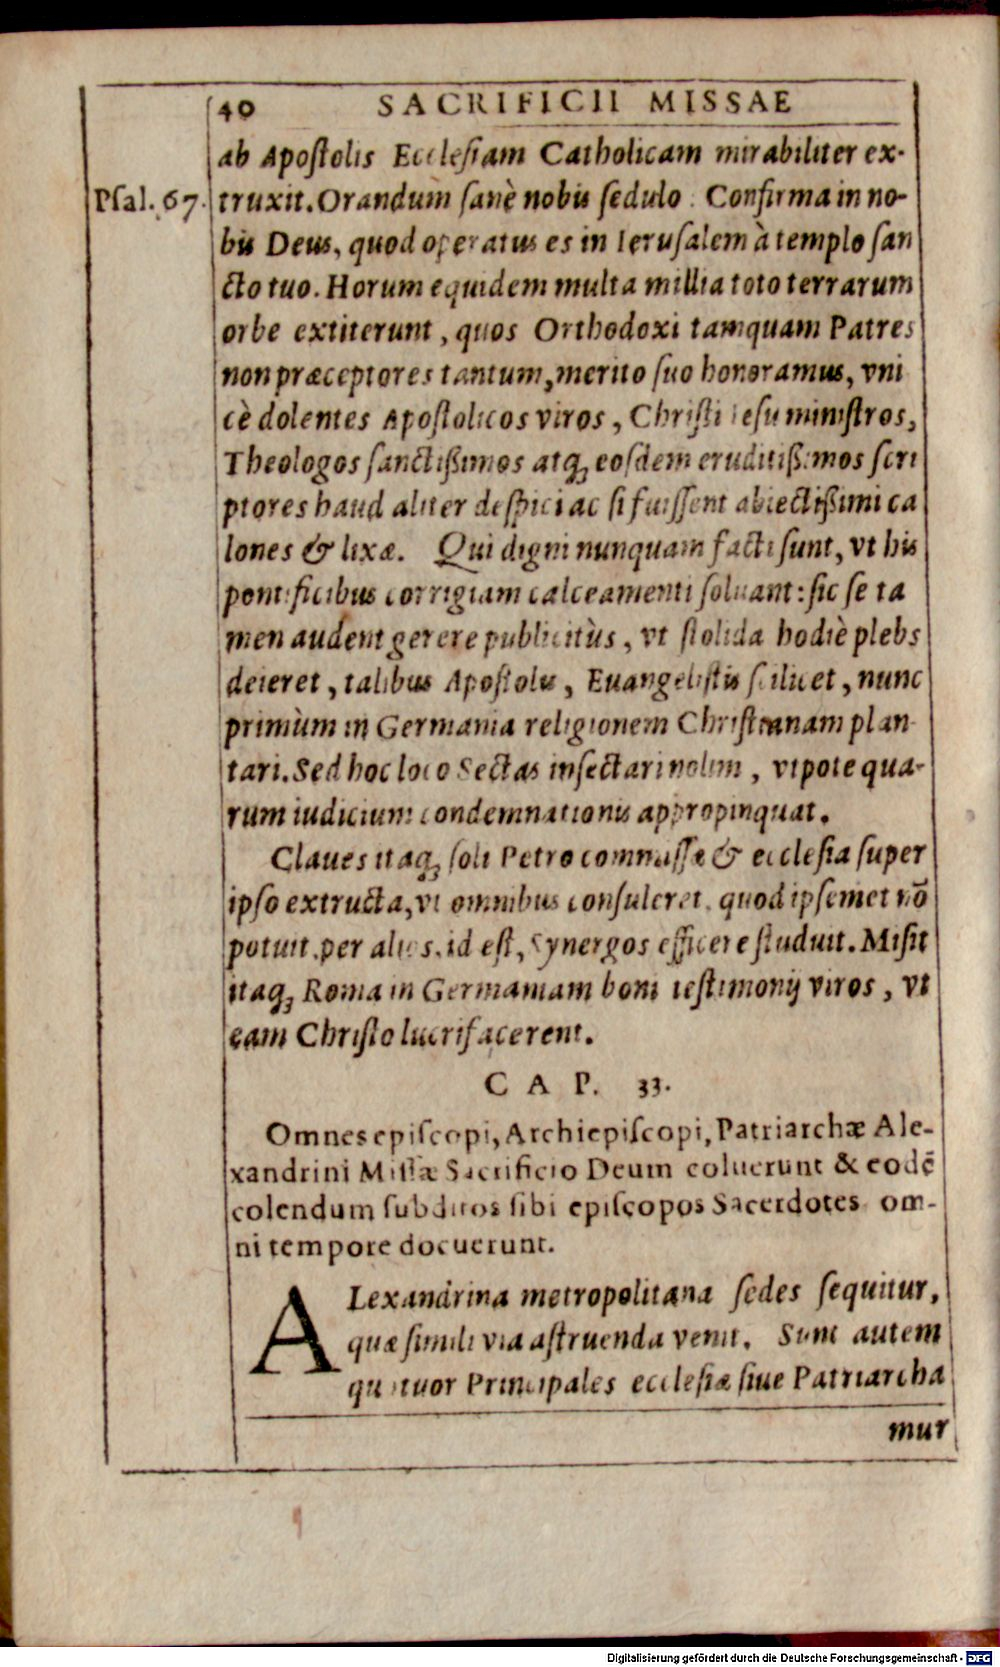 40 SACRIFICII MISSAE
ab Apostolis Ecclesiam Catholicam mirabiliter ex-
Psal. 67. truxit. Orandum sanè nobis sedulo: Confirma in no-
bis Deus, quod operatus es in Ierusalem à templo san
cto tuo. Horum equidem multa millia toto terrarum
orbe extiterunt, quos Orthodoxi tamquam Patres
non præceptores tantum, merito suo honoramus, vni
cè dolentes Apostolicos viros, Christi Iesu ministros,
Theologos sanctißimos atq; eosdem eruditißimos scri
ptores haud aliter despici ac si fuissent abiectißimi ca
lones & lixæ. Qui digni nunquam facti sunt, vt his
pontificibus corrigiam calceamenti soluant: sic se ta
men audent gerere publicitùs, vt stolida hodiè plebs
deieret, talibus Apostolis, Euangelistis scilicet, nunc
primùm in Germania religionem Christianam plan-
tari. Sed hoc loco Sectas insectari nolim, vtpote qua-
rum iudicium condemnationis appropinquat.
Claues itaq; soli Petro commissæ & ecclesia super
ipso extructa, vt omnibus consuleret, quod ipsemet nō
potuit, per alios, id est, Synergos efficere studuit. Misit
itaq; Roma in Germaniam boni testimonij viros, vt
eam Christo lucrifacerent.
CAP. 33.
Omnes episcopi, Archiepiscopi, Patriarchæ Ale-
xandrini Missæ Sacrificio Deum coluerunt & eodē
colendum subditos sibi episcopos Sacerdotes om-
ni tempore docuerunt.
ALexandrina metropolitana sedes sequitur,
quæ simili via astruenda venit. Sunt autem
quatuor Principales ecclesiæ siue Patriarcha
mur
Digitalisierung gefördert durch die Deutsche Forschungsgemeinschaft - DFG